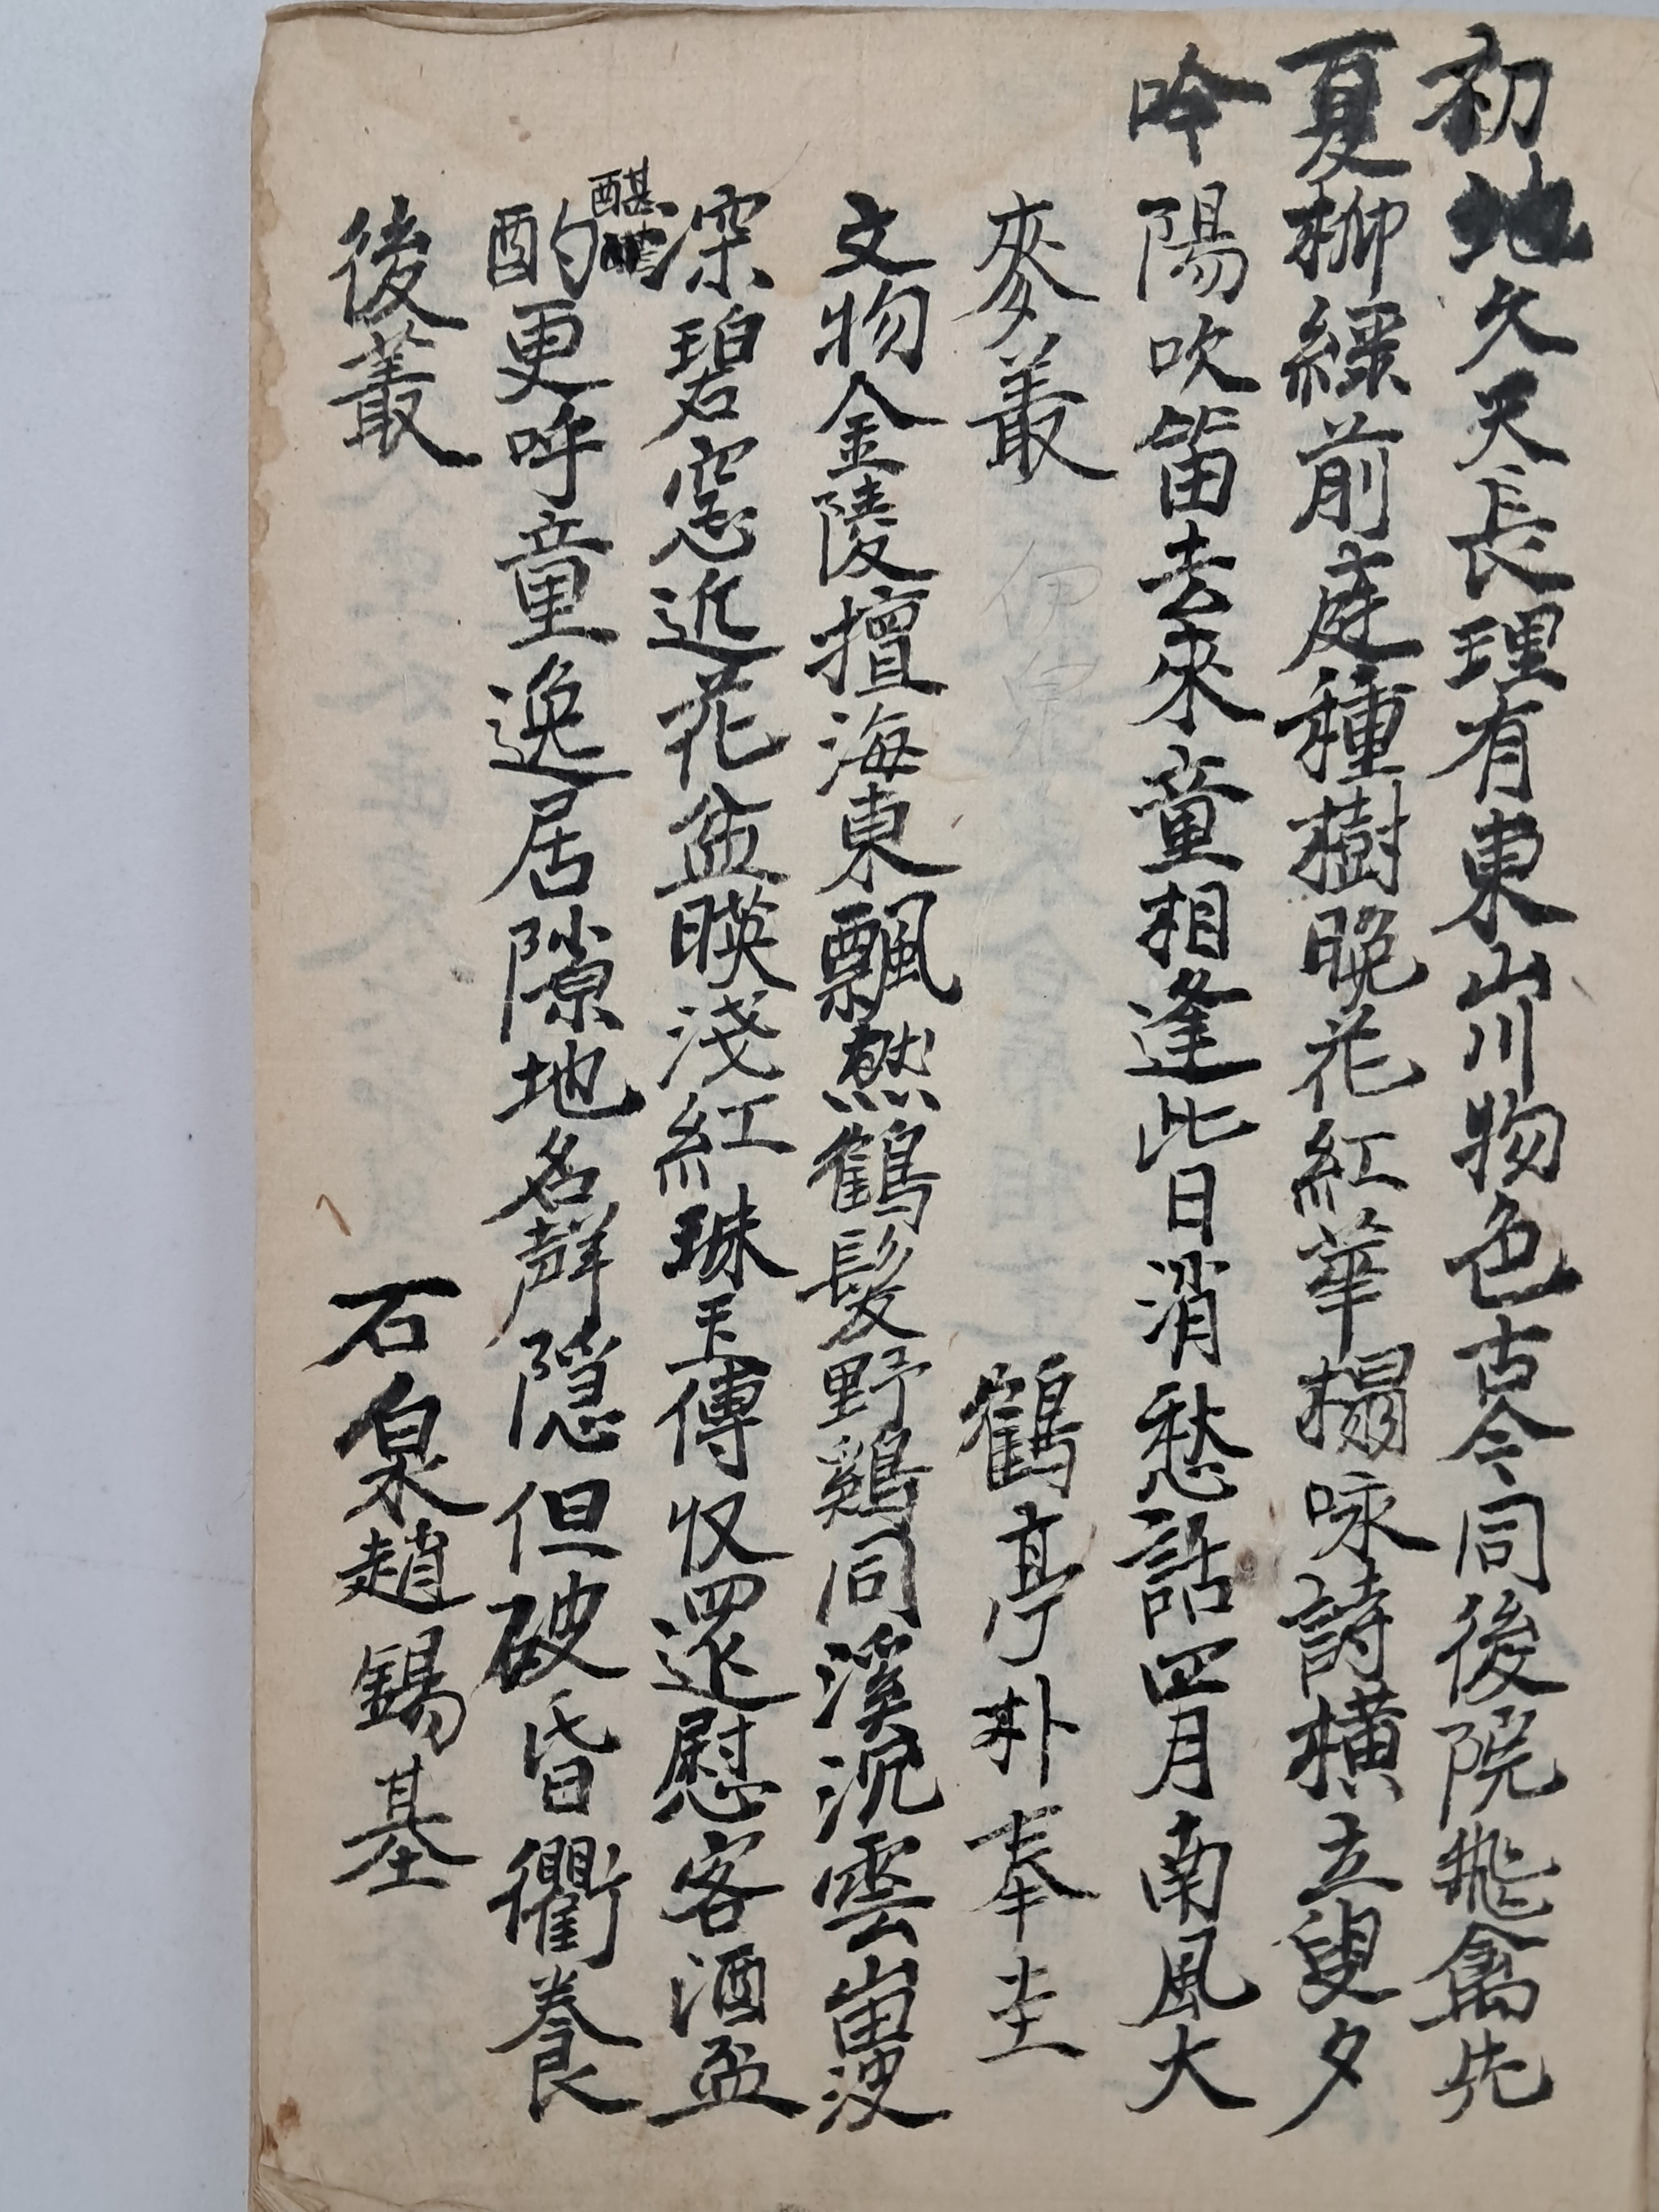 初地久天長理有東山川物色古今同後院飛禽先
夏柳綠前庭種樹晩花紅華榻咏詩橫立叟夕
吟陽吹笛去來童相逢此日消愁話四月南風大
麥叢 鶴亭朴奉圭
文物金陵擅海東飄然鶴髮野鷄同溪沉雲崗溲
深碧窓近花盆暎淺紅珠玉傳收還慰客酒盃
酌更呼童逸居隙地名聲隱但破昏衢養
後叢 石泉趙錫基